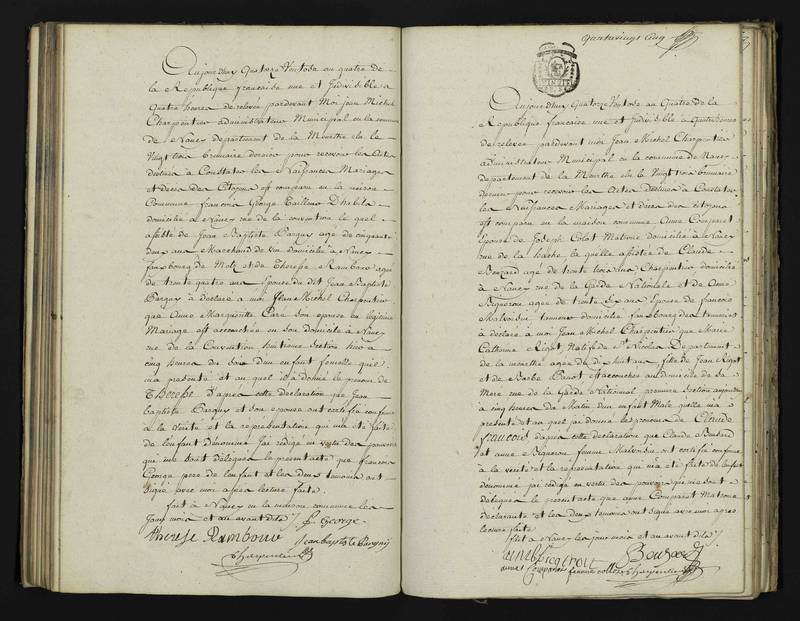 Aujourd'huy Quatorze Ventose an quatre de
la Republique francaise une et Indivisible a
Quatre heures de relevée pardevant Moi jean Michel
Charpentier administrateur Municipal en la commune
de Nancy departement de la Meurthe elu le
Vingt trois brumaire dernier pour recevoir les Actes
destinés à Constater les Naissances Mariages
et deces des Citoyens est comparu en la maison
Commune francois George tailleur D'habits
domicilié a Nancy rue de la convention le quel
assisté de Jean Baptiste Bargny agé de cinquante
deux ans Marchand de vin domicilié a Nancy
faubourg de Metz et de Therese Rambaux agée
de trente quatre ans Epouse du dit Jean Baptiste
Bargny a declaré a moi Jean Michel Charpentier
que Anne Marguerite Caré son epouse en legitime
Mariage est accouchée en son domicile à Nancy
rue de la Convention huitieme Section hier a
cinq heures du soir d'un enfant femelle qu'il
m'a presenté et au quel il a donné le prenom de
Therese d'apres cette declaration que Jean
baptiste Bargny et son epouse ont certifié conforme
a la vérité et la representation qui m'a été faite
de l'enfant denommé J'ai rédigé en vertu des pouvoirs
qui me sont délégués le present acte que francois
George pere de l'enfant et les deux temoins ont
signé avec moi apres lecture faite.
fait à Nancy en la maison commune les
Jour mois et an avant dits
f. George
therese Rambaux Jean baptiste Bargny
Charpentier
quatrevingt cinq
Aujourd'huy Quatorze Ventose an Quatre de la
Republique francaise une et Indivisible à Quatre heures
de relevée pardevant moi Jean Michel Charpentier
administrateur Municipal en la commune de Nancy
departement de la Meurthe elu le Vingt trois brumaire
dernier pour recevoir les Actes destinés a Constater
les Naissances Mariages et deces des citoyens
est comparu en la maison commune Anne Comparet
épouse de Joseph Colot Matrone domiciliée à Nancy
rue de la hache la quelle assistée de Claude
Bouzard agé de trente trois ans Charpentier domicilié
à Nancy rue de la Garde Nationale et de Anne
Bigneron agée de trente six ans Epouse de francois
Malvoisin tanneur domiciliée faubourg des tanneries
à déclaré à moi Jean Michel Charpentier que Marie
Catherine Rigot Native de St Nicolas Departement
de la meurthe agée de dix huit ans fille de Jean Rigot
et de Barbe est accouchée au domicile de sa
Mere rue de la Garde Nationale premiere Section aujourd'hui
à cinq heures du Matin d'un enfant Male qu'elle m'a
présenté et au quel j'ai donné les prenoms de Claude
francois d'apres cette declaration que Claude Bouzard
et anne Bigneron femme Malvoisin ont certifié conforme
à la verité et la representation qui m'a été faite de l'enfant
denommé j'ai rédigé en vertu des pouvoirs qui me sont
délégués le present acte que anne Comparet Matrone
declarante et les deux temoins ont signé avec moi apres
lecture faite
fait a Nancy les jour mois et an avant dits
Bouzard
anne Comparet femme collot Charpentier